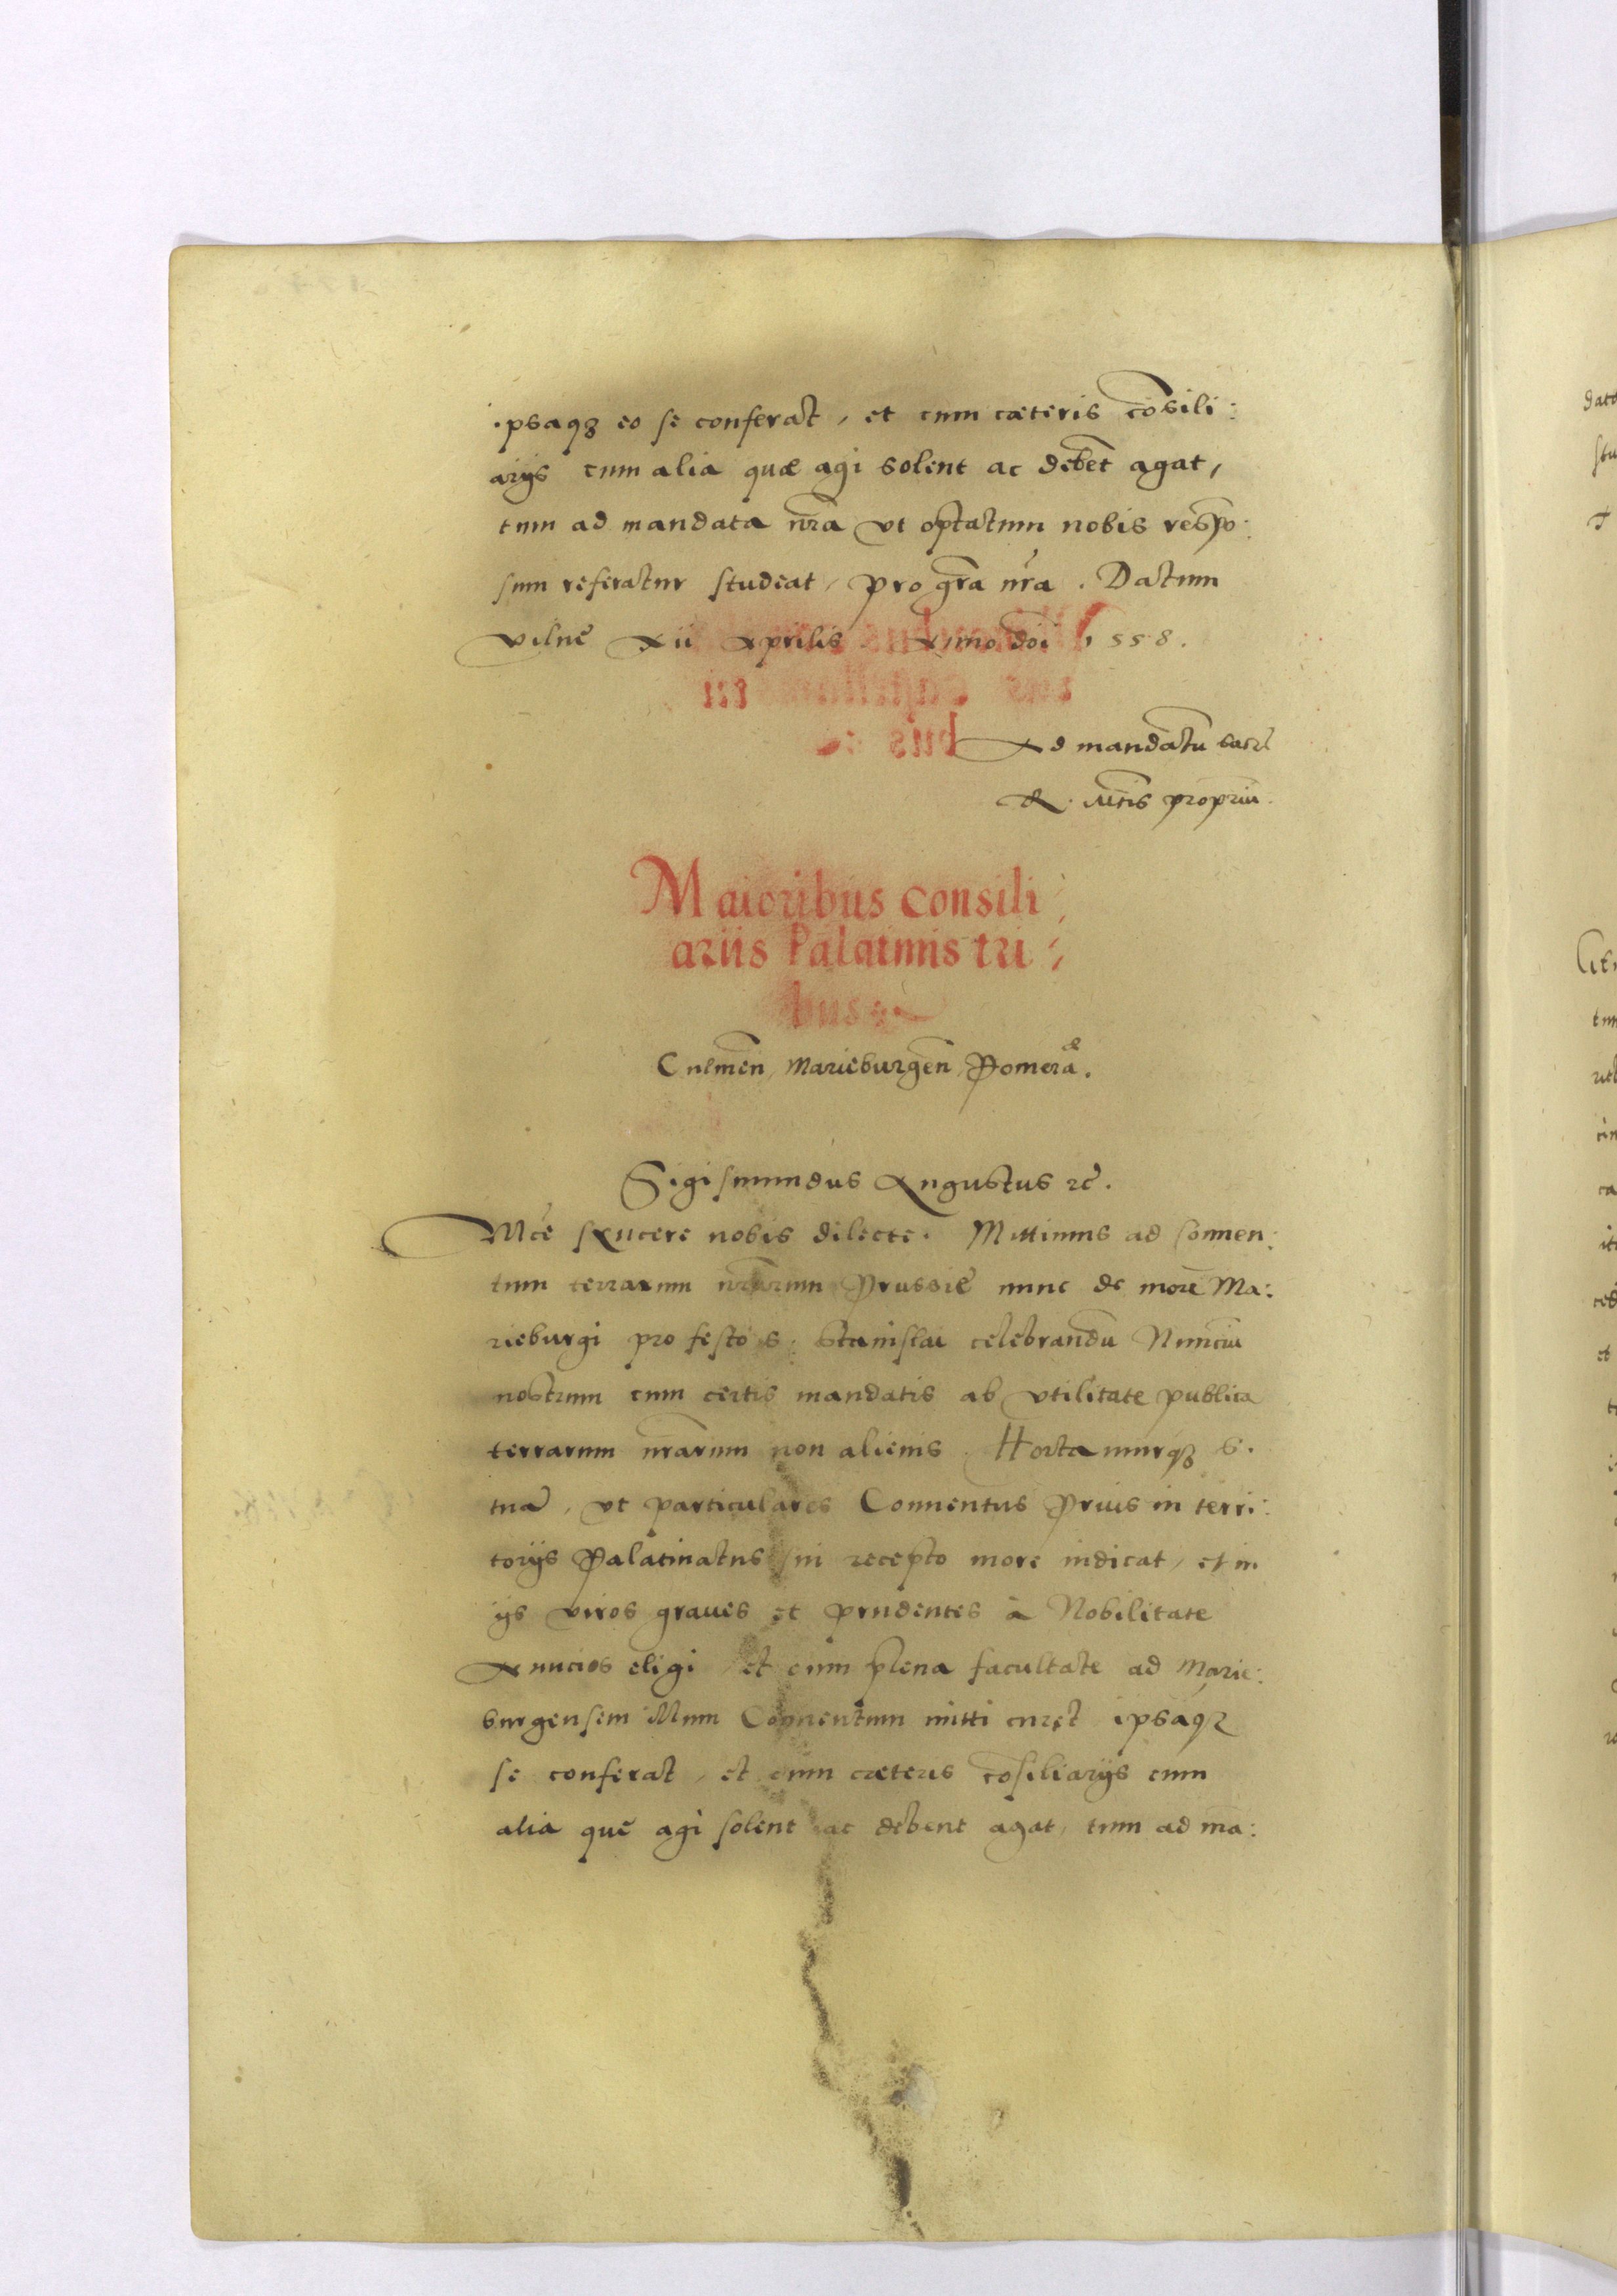 ipsaqꝫ eo se conferat, et cum cæteris cōsili:
arijs cum alia quæ agi solent ac debēt agat,
tum ad mandata nr̄a vt optatum nobis respō:
sum referatur studeat, pro gr̄a nr̄a. Datum
Vilnę xii Aprilis Anno doī 1558.
Ad mandatū sacrę
R. Mtīs propriū.
Maioribus consili:
ariis Palatinis tri:
bus
Culmeñ, Marieburgeñ, Pomerā.
Sigismundus Augustus ꝛc̄.
Mcē syncere nobis dilecte. Mittimus ad Conuen:
tum terrarum nr̄arum Prussię nunc de more Ma:
rieburgi pro festo S. Stanislai celebrandū Nunciū
nostrum cum certis mandatis ab vtilitate publica
terrarum nr̄arum non alienis. Hortamurqꝫ S.
tuā, vt particulares Conuentus prius in terri:
torijs Palatinatus sui recepto more indicat, et in
ijs viros graues et prudentes à Nobilitate
Nuncios eligi, et cum plena facultate ad Marie:
burgensem illum Conuentum mitti curet ipsaqꝫ
se conferat, et cum cæteris cōsiliarijs cum
alia quę agi solent ac debent agat, tum ad ma: